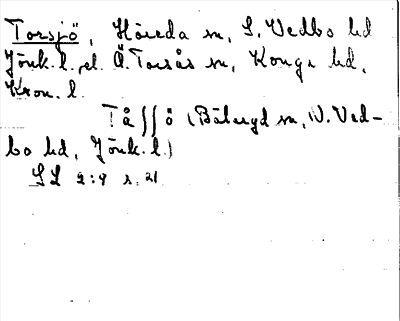 Torsjö, Höreda sn, S. Vedbo hd
Jönk. l. el. Ö. Torsås sn, Konga hd,
Kron. l.
Tåſſö (Bälaryd sn, N. Ved-
bo hd, Jönk. l.)
SL 2:9 s. 21